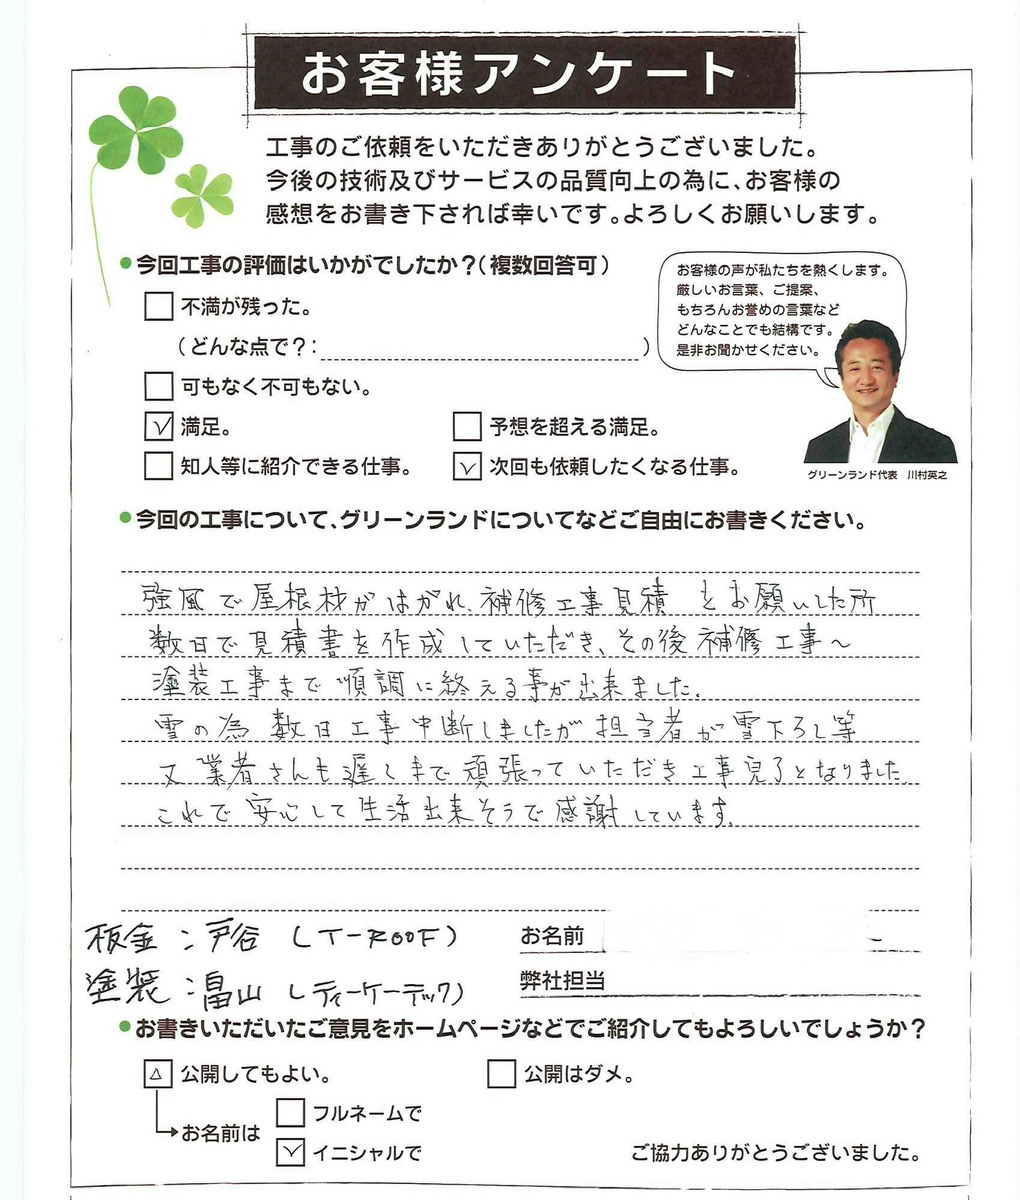 お客様アンケート
工事のご依頼をいただきありがとうございました。
今後の技術及びサービスの品質向上の為に、お客様の
感想をお書き下されば幸いです。よろしくお願いします。
●今回工事の評価はいかがでしたか?(複数回答可)
不満が残った。
(どんな点で?: )
可もなく不可もない。
満足。
予想を超える満足。
知人等に紹介できる仕事。
次回も依頼したくなる仕事。
お客様の声が私たちを熱くします。
厳しいお言葉、ご提案、
もちろんお誉めの言葉など
どんなことでも結構です。
是非お聞かせください。
グリーンランド代表 川村英之
●今回の工事について、グリーンランドについてなどご自由にお書きください。
強風で屋根材がはがれ、補修工事見積をお願いした所
数日で見積書を作成していただき、その後補修工事〜
塗装工事まで順調に終える事が出来ました。
雪の為数日工事中断しましたが担当者が雪下ろし等
又業者さんも遅くまで頑張っていただき工事完了となりました。
これで安心して生活出来そうで感謝しています。
板金:戸谷(T-ROOF)
塗装:畠山(ティーケーテック)
お名前
弊社担当
●お書きいただいたご意見をホームページなどでご紹介してもよろしいでしょうか?
公開してもよい。
公開はダメ。
お名前は
フルネームで
イニシャルで
ご協力ありがとうございました。